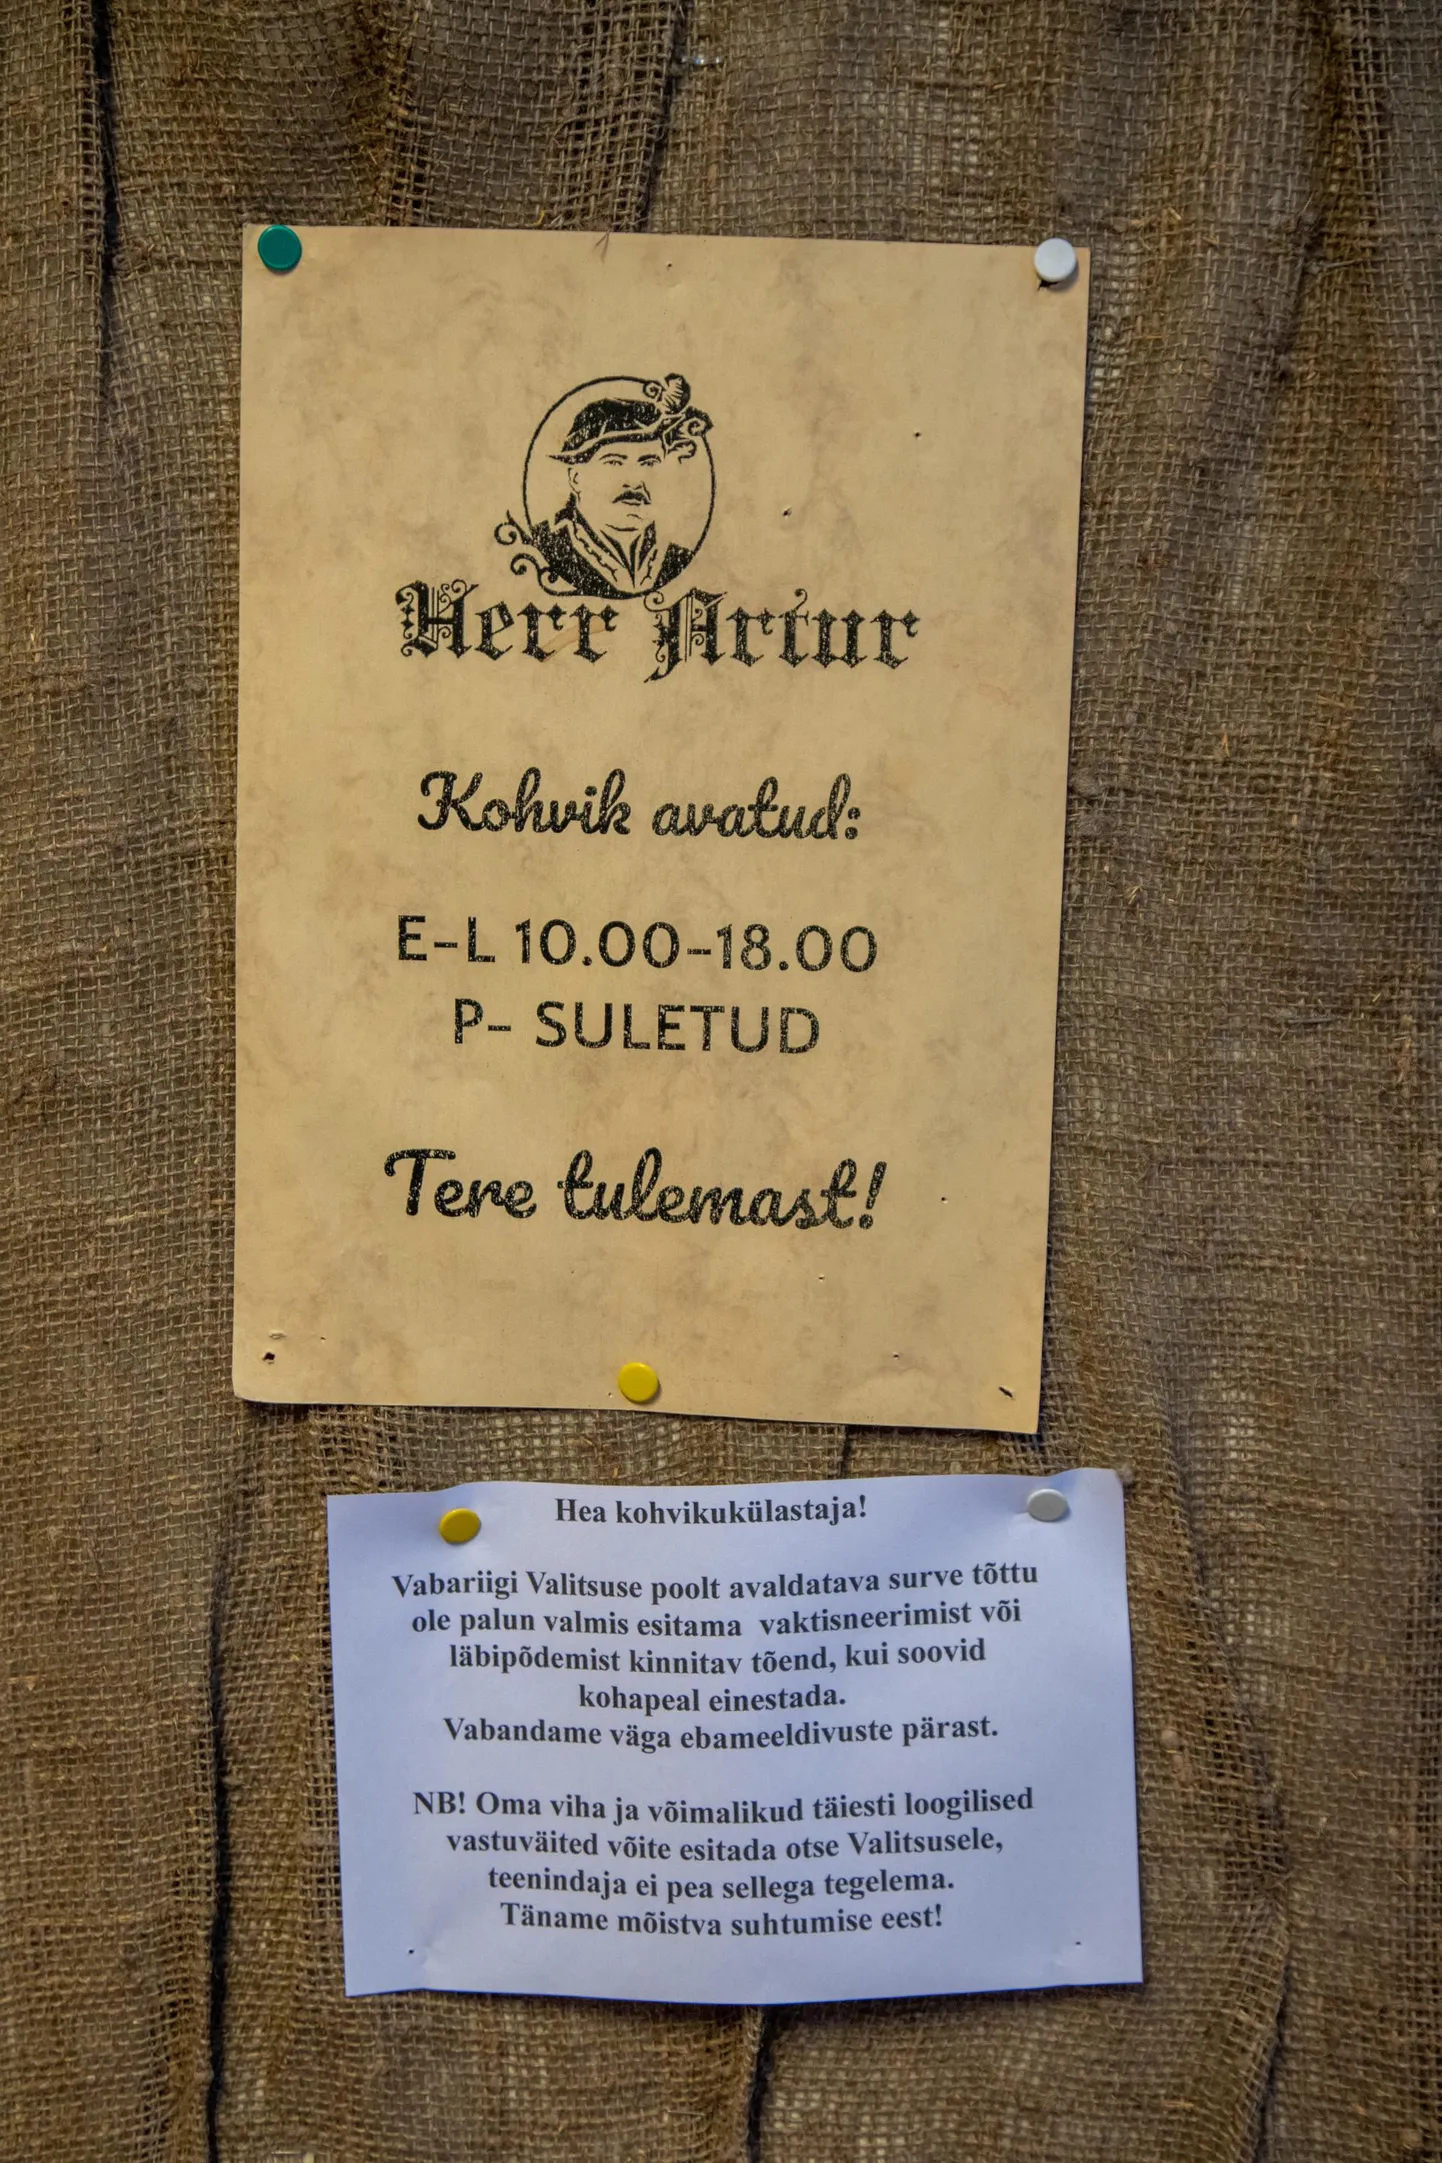 Herr Artur
Kohvik avatud:
E-L 10.00-18.00
P- SULETUD
Tere tulemast!
Hea kohvikukülastaja!
Vabariigi Valitsuse poolt avaldatava surve tõttu
ole palun valmis esitama vaktisneerimist või
läbipõdemist kinnitav tõend, kui soovid
kohapeal einestada.
Vabandame väga ebameeldivuste pärast.
NB! Oma viha ja võimalikud täiesti loogilised
vastuväited võite esitada otse Valitsusele,
teenindaja ei pea sellega tegelema.
Täname mõistva suhtumise eest!